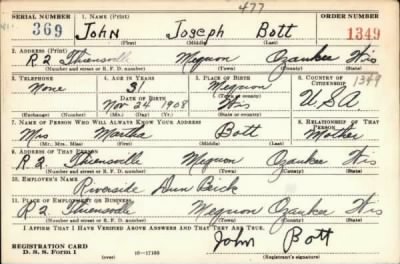 477
SERIAL NUMBER 1. NAME (Print) ORDER NUMBER
369 John Joseph Bott 1349
(First) (Middle) (Last)
2. ADDRESS (Print)
R2 Thiensville Mequon Ozaukee Wis
(Number and street or R. F. D. number) (Town) (County) (State)
3. TELEPHONE 4. AGE IN YEARS 5. PLACE OF BIRTH 6. COUNTRY OF CITIZENSHIP 1349
None 31 Mequon
DATE OF BIRTH (Town or county)
Nov 24 1908 Wis U.S.A.
(Exchange) (Number) (Mo.) (Day) (Yr.) (State or country)
7. NAME OF PERSON WHO WILL ALWAYS KNOW YOUR ADDRESS 8. RELATIONSHIP OF THAT PERSON
Mrs Martha Bott Mother
(Mr., Mrs., Miss) (First) (Middle) (Last)
9. ADDRESS OF THAT PERSON
R2. Thiensville Mequon Ozaukee Wis
(Number and street or R. F. D. number) (Town) (County) (State)
10. EMPLOYER'S NAME
Riverside Brick
11. PLACE OF EMPLOYMENT OR BUSINESS
R2 Thiensville Mequon Ozaukee Wis
(Number and street or R. F. D. number) (Town) (County) (State)
I AFFIRM THAT I HAVE VERIFIED ABOVE ANSWERS AND THAT THEY ARE TRUE.
REGISTRATION CARD John Bott
D. S. S. Form 1 (over) 16—17105 (Registrant's signature)